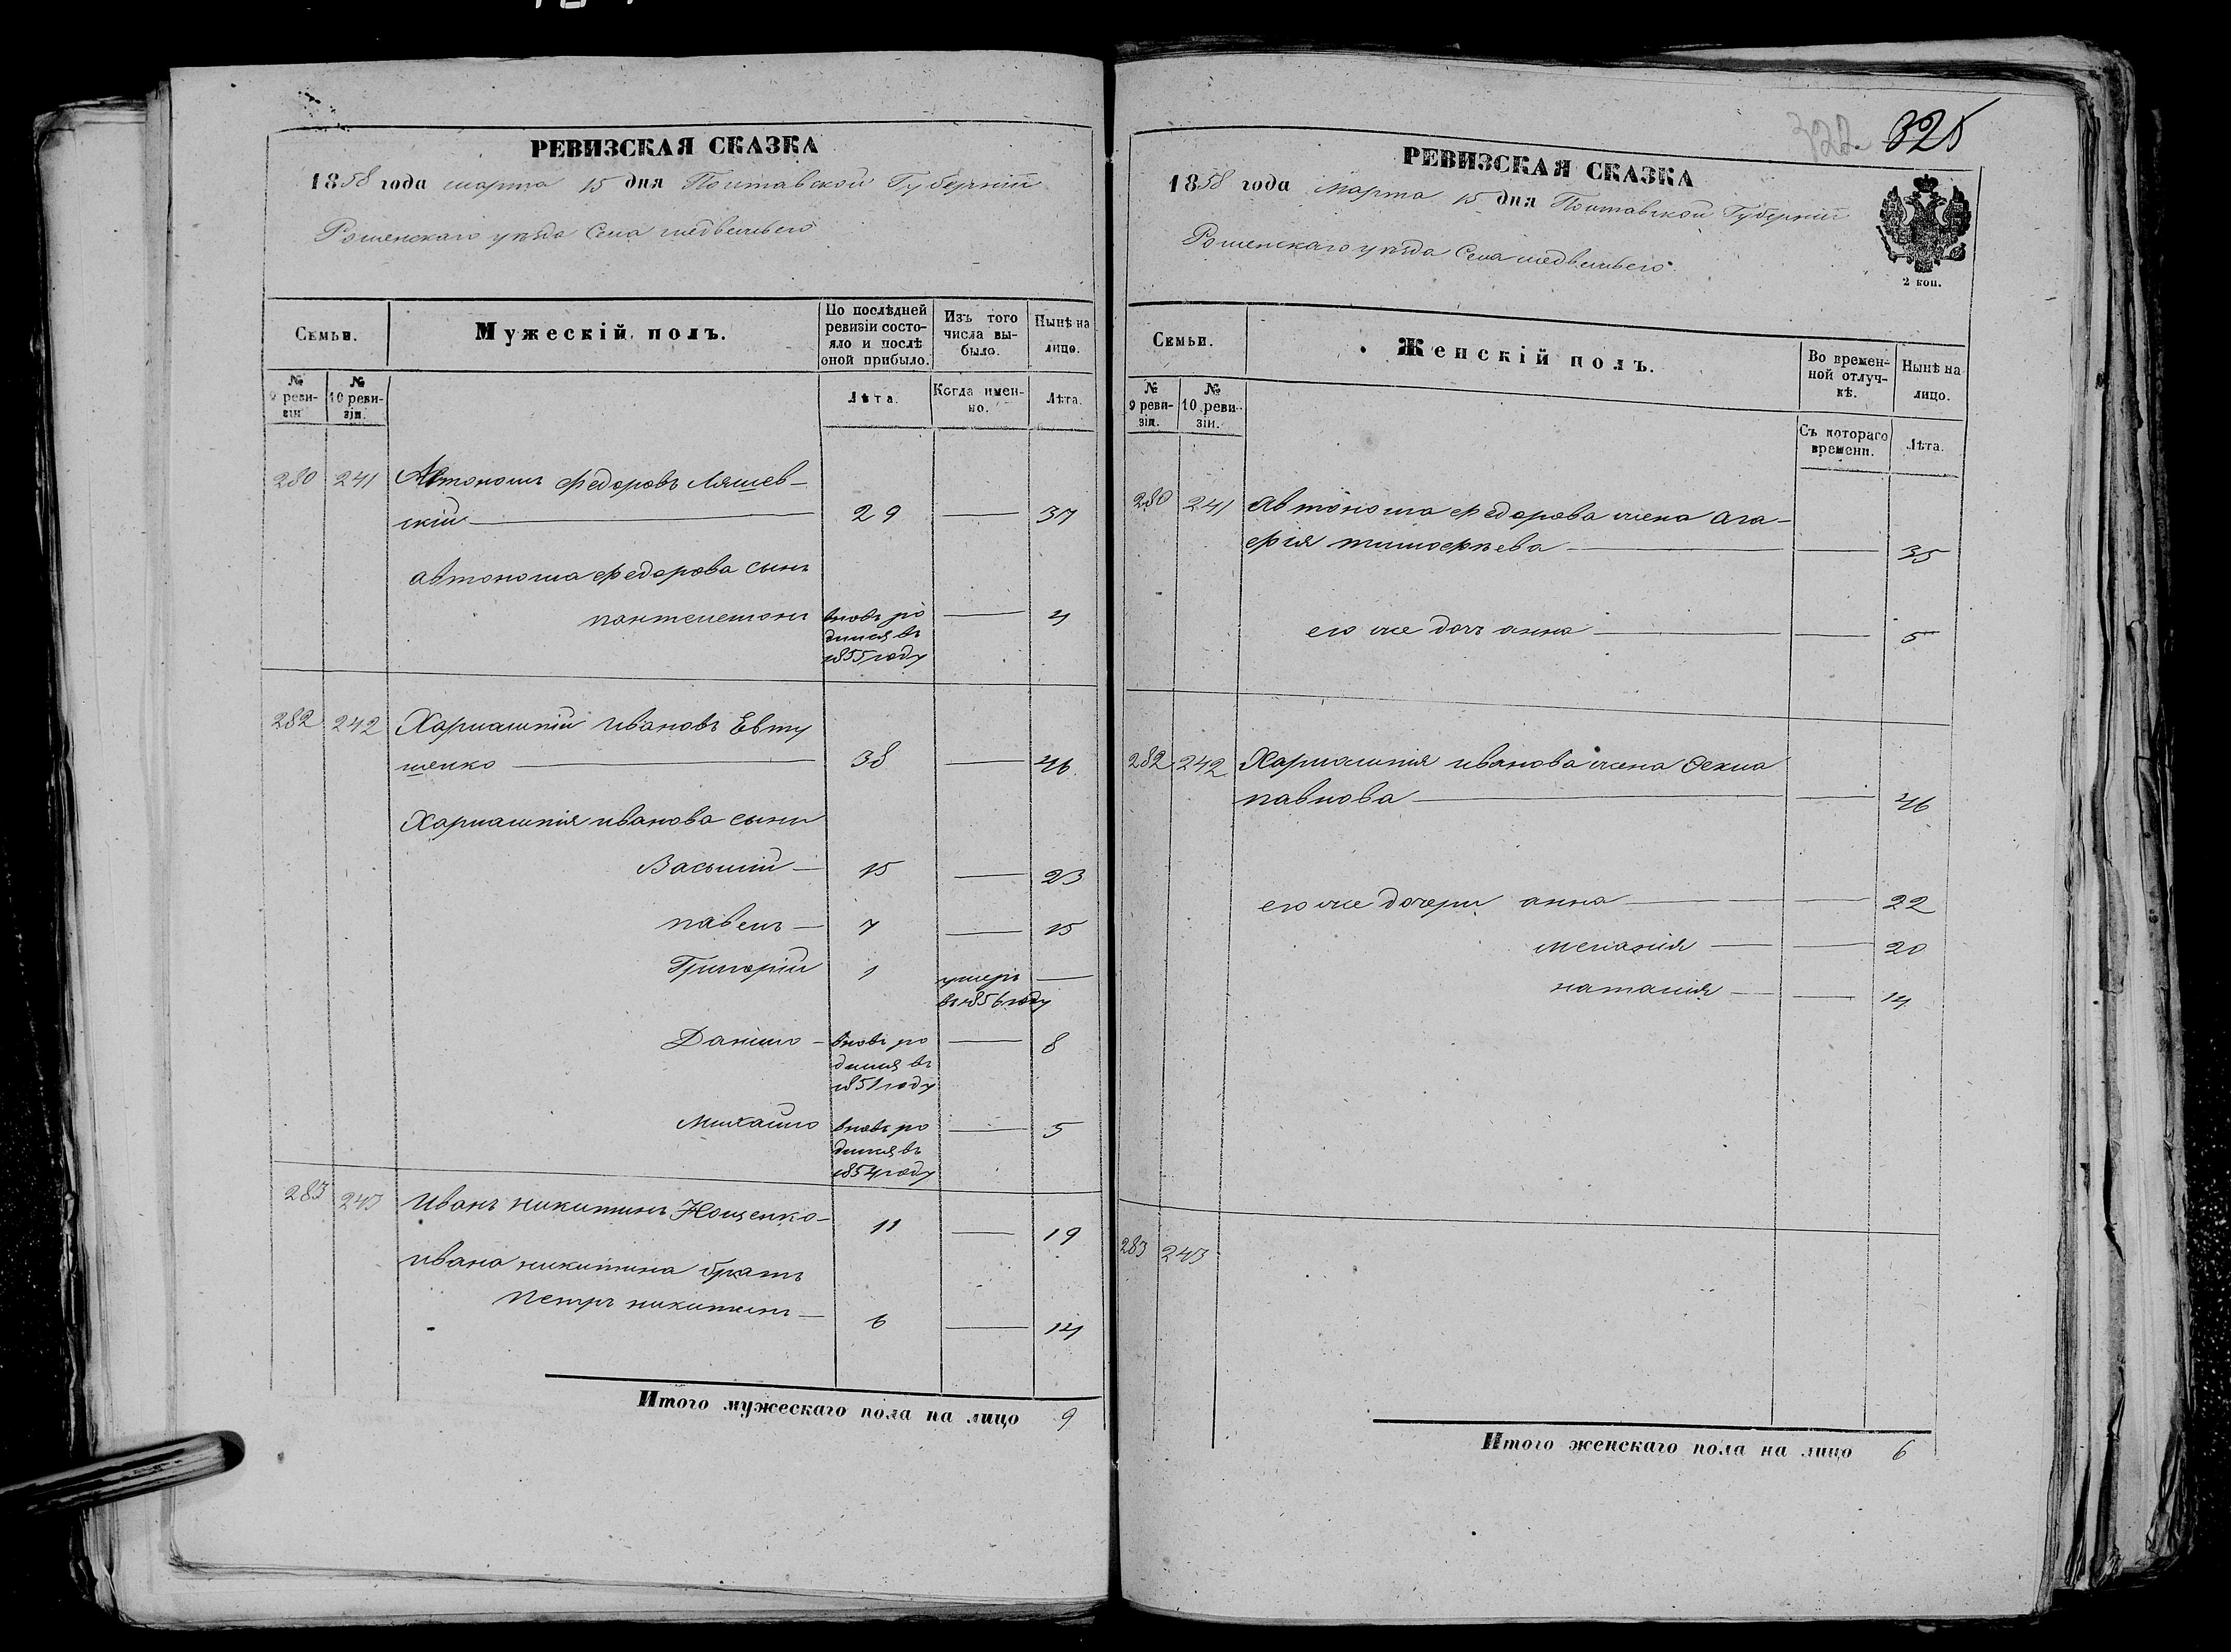 РЕВИЗСКАЯ СКАЗКА
1858 года марта 15 дня Полтавской Губерніи
Роменскаго уѣзда Села медвежьего
Семьи.
Мужескій полъ.
По послѣдней ревизіи состояло и послѣ оной прибыло.
Изъ того числа выбыло.
Нынѣ на лицо.
№ 9 ревизіи
№ 10 ревизіи.
Лѣта.
Когда именно.
Лѣта.
280 241 Автономъ Федоровъ Ляшев-
скій 29 — 37
автонома Федорова сынъ
пантелемонъ вновь ро — 4
дился въ
1855 году
282 242 Харлампій ивановъ Евту
шенко 38 — 46
Харлампія иванова сыны
Василий — 15 — 23
павелъ — 7 — 15
Григорій 1 умеръ —
въ 1856 году
Данило — вновь ро — 8
дился въ
1851 году
Михайло вновь ро — 5
дился въ
1854 году
283 243 Иванъ никитинъ Нощенко — 11 — 19
ивана никитина братъ
Петръ никитинъ — 6 — 14
Итого мужескаго пола на лицо 9
322 325
РЕВИЗСКАЯ СКАЗКА
1858 года марта 15 дня Полтавской Губерніи
Роменскаго уѣзда Села медвежьего
2 коп.
Семьи.
Женскій полъ.
Во временной отлучкѣ.
Нынѣ на лицо.
№ 9 ревизіи.
№ 10 ревизіи.
Съ котораго времени.
Лѣта.
280 241 Автонома Федорова жена ага-
фія тимофѣева — — 35
его же дочь анна — — 5
282 242 Харлампія иванова жена Фекла
павлова — — 46
его же дочери анна — — 22
меланія — — 20
наталія — — 14
283 243
Итого женскаго пола на лицо 6